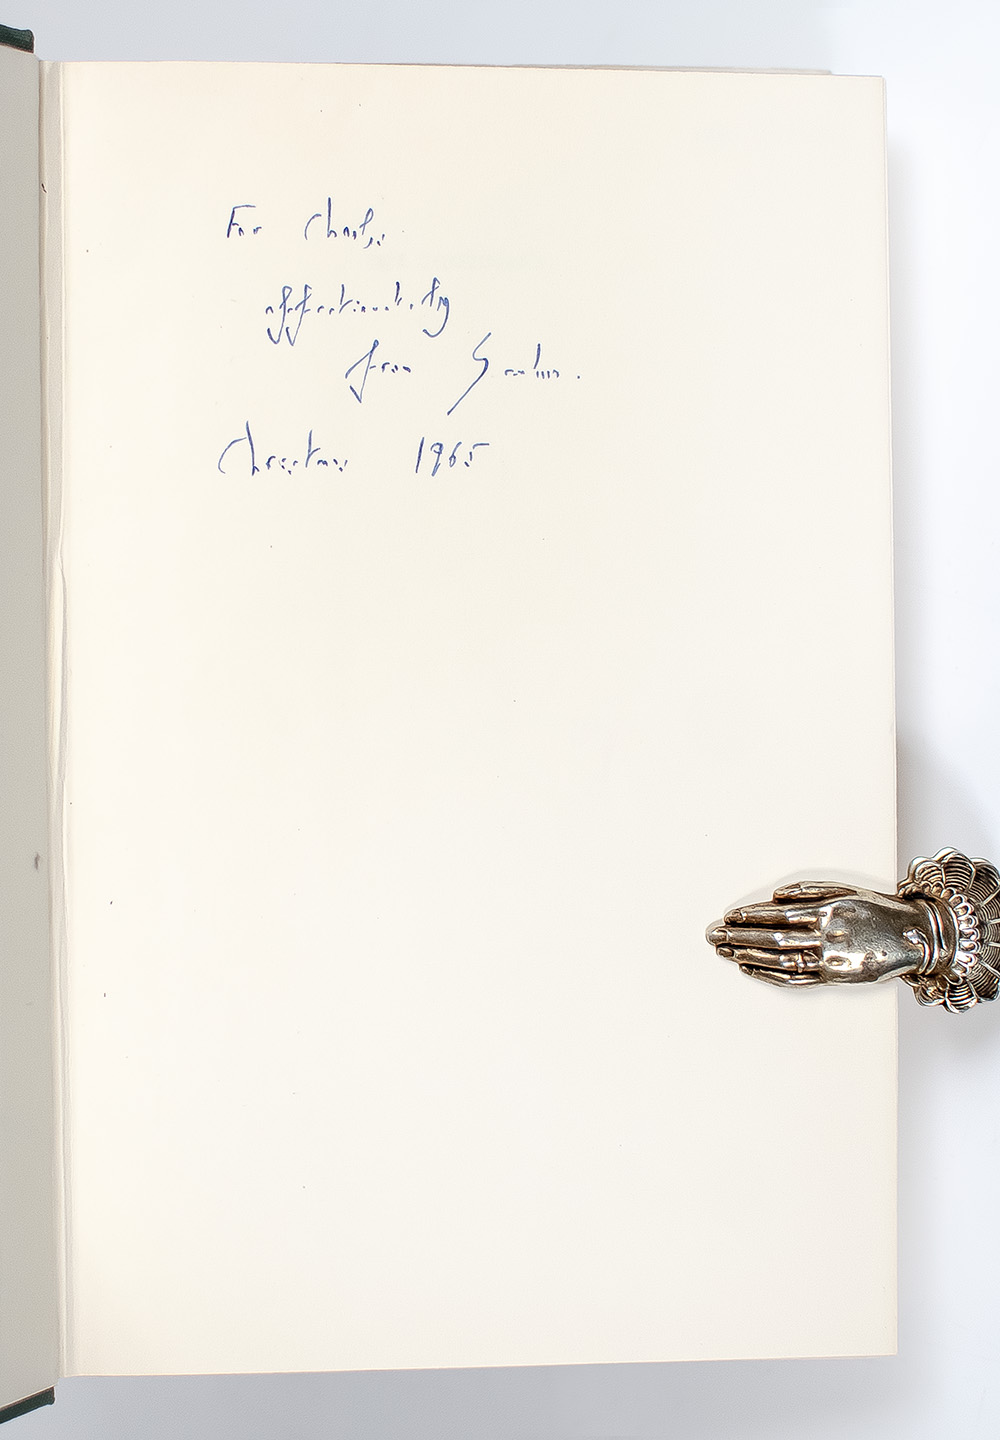 For Charles
affectionately
from
Christmas 1965